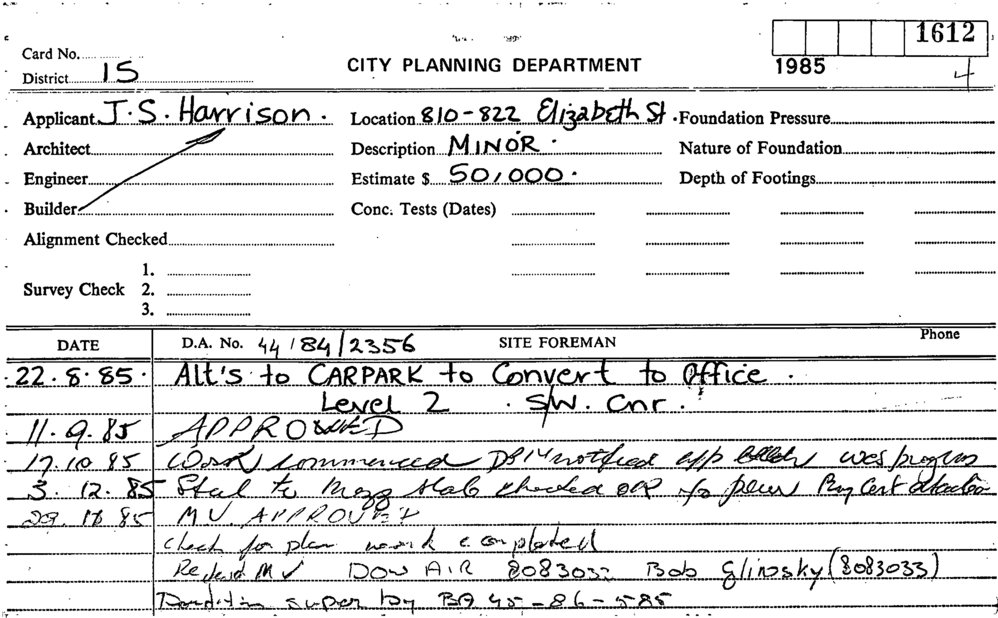 1612
Card No.
District 15
CITY PLANNING DEPARTMENT
1985
4
Applicant J.S. Harrison. Location 810-822 Elizabeth St. Foundation Pressure
Architect Description MINOR. Nature of Foundation
Engineer Estimate $ 50,000. Depth of Footings
Builder Conc. Tests (Dates)
Alignment Checked
1.
Survey Check 2.
3.
DATE D.A. No. 44/84/2356 SITE FOREMAN Phone
22.8.85. Alt's to CARPARK to Convert to Office.
Level 2. S/W. Cnr.
11.9.85 APPROVED
17.10.85 Work commenced notified
3.12.85 Steel to Mezz slab checked
85 M.V. APPROVED
Check for plan work completed
M V DOW AIR 8083033 Bob Glinosky (8083033)
super by BA 45-86-585